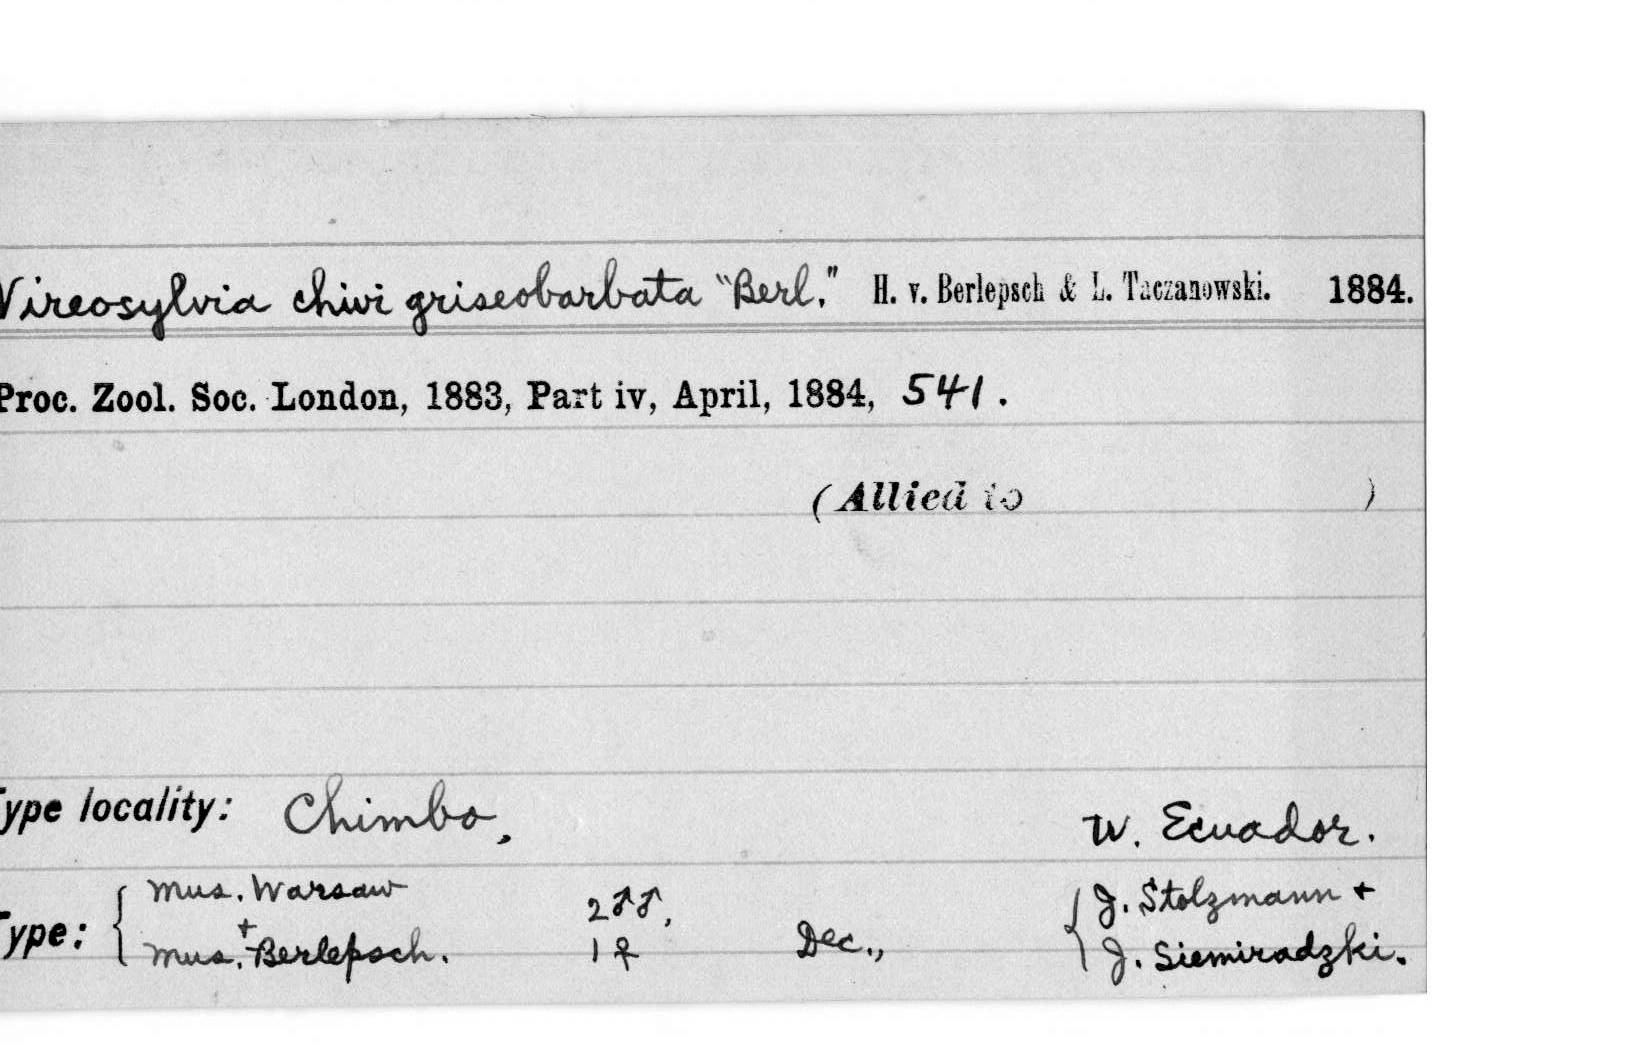 Vireosylvia chivi griseobarbata "Berl." H. v. Berlepsch & L. Taczanowski. 1884.
Proc. Zool. Soc. London, 1883, Part iv, April, 1884, 541.
(Allied to )
Type locality: Chimbo, W. Ecuador.
Mus. Warsaw 2♂♂, J. Stolzmann +
Type: +
Mus. Berlepsch. 1♀ Dec., J. Siemiradzki.